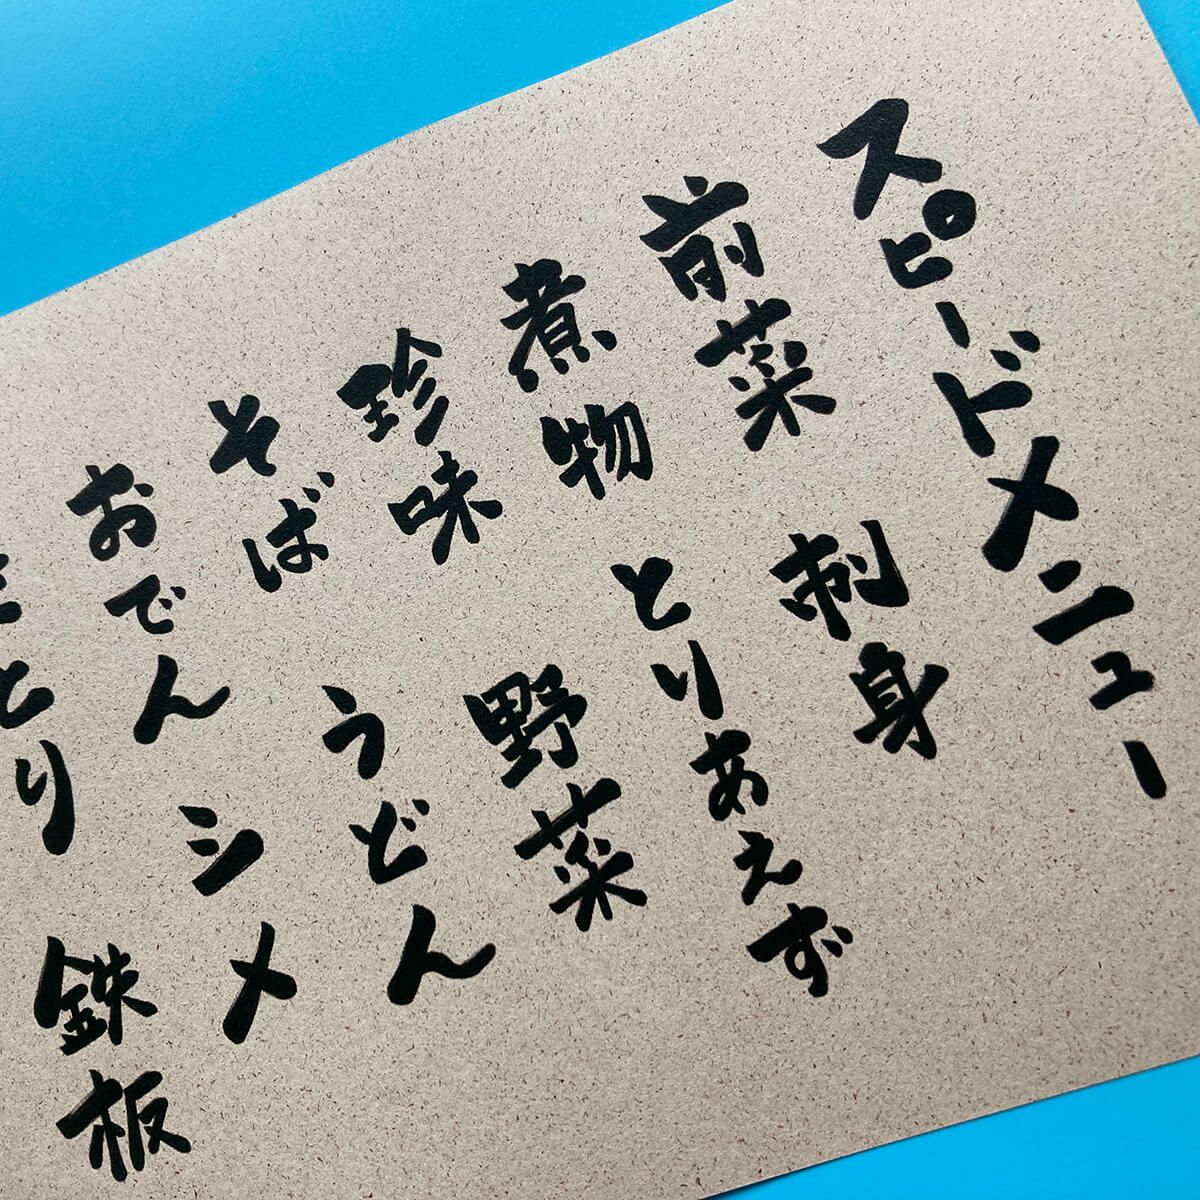 スピードメニュー
前菜
刺身
煮物
とりあえず
珍味
野菜
そば
うどん
おでん
シメ
とり
鉄板